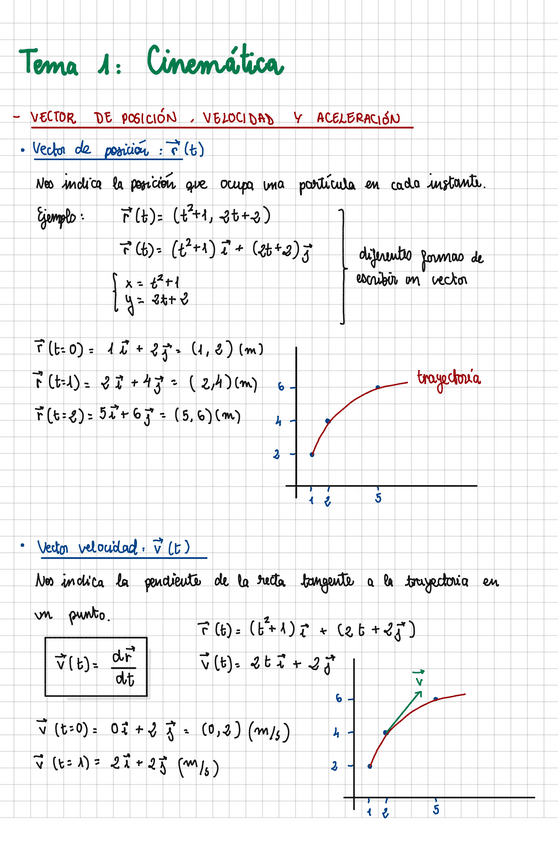 Tema 1: Cinemática
- VECTOR DE POSICIÓN, VELOCIDAD Y ACELERACIÓN
• Vector de posición: r⃗(t)
Nos indica la posición que ocupa una partícula en cada instante.
Ejemplo: r⃗(t) = (t²+1, 2t+2)
r⃗(t) = (t²+1) i⃗ + (2t+2) j⃗
x = t²+1
y = 2t+2
diferentes formas de
escribir un vector
r⃗(t=0) = 1 i⃗ + 2 j⃗ = (1, 2) (m)
r⃗(t=1) = 2 i⃗ + 4 j⃗ = (2,4) (m)
r⃗(t=2) = 5 i⃗ + 6 j⃗ = (5, 6) (m)
trayectoria
6
4
2
1 2 5
• Vector velocidad: v⃗(t)
Nos indica la pendiente de la recta tangente a la trayectoria en
un punto.
r⃗(t) = (t²+1) i⃗ + (2t + 2 j⃗)
v⃗(t) = dr⃗/dt
v⃗(t) = 2t i⃗ + 2 j⃗
v⃗(t=0) = 0 i⃗ + 2 j⃗ = (0, 2) (m/s)
v⃗(t=1) = 2 i⃗ + 2 j⃗ (m/s)
v⃗
6
4
2
1 2 5